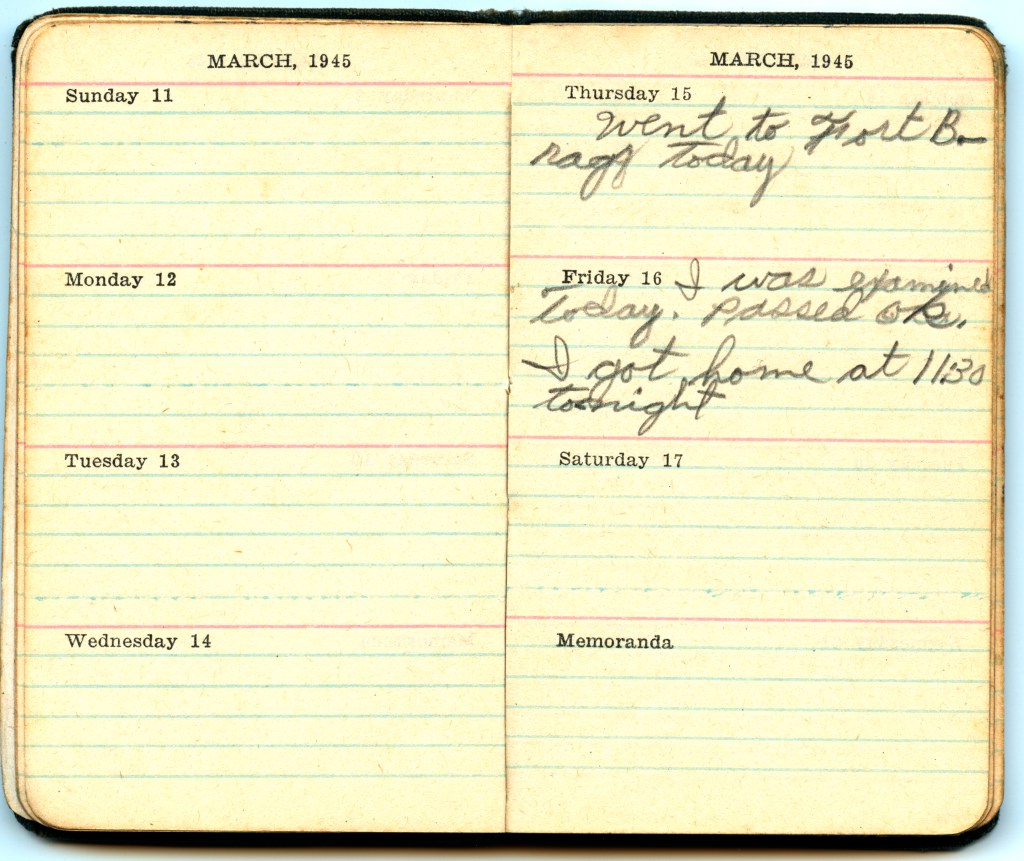 MARCH, 1945
Sunday 11
Monday 12
Tuesday 13
Wednesday 14
MARCH, 1945
Thursday 15
Went to Fort B-
ragg today
Friday 16 I was examined
today. passed ok.
I got home at 1130
tonight
Saturday 17
Memoranda